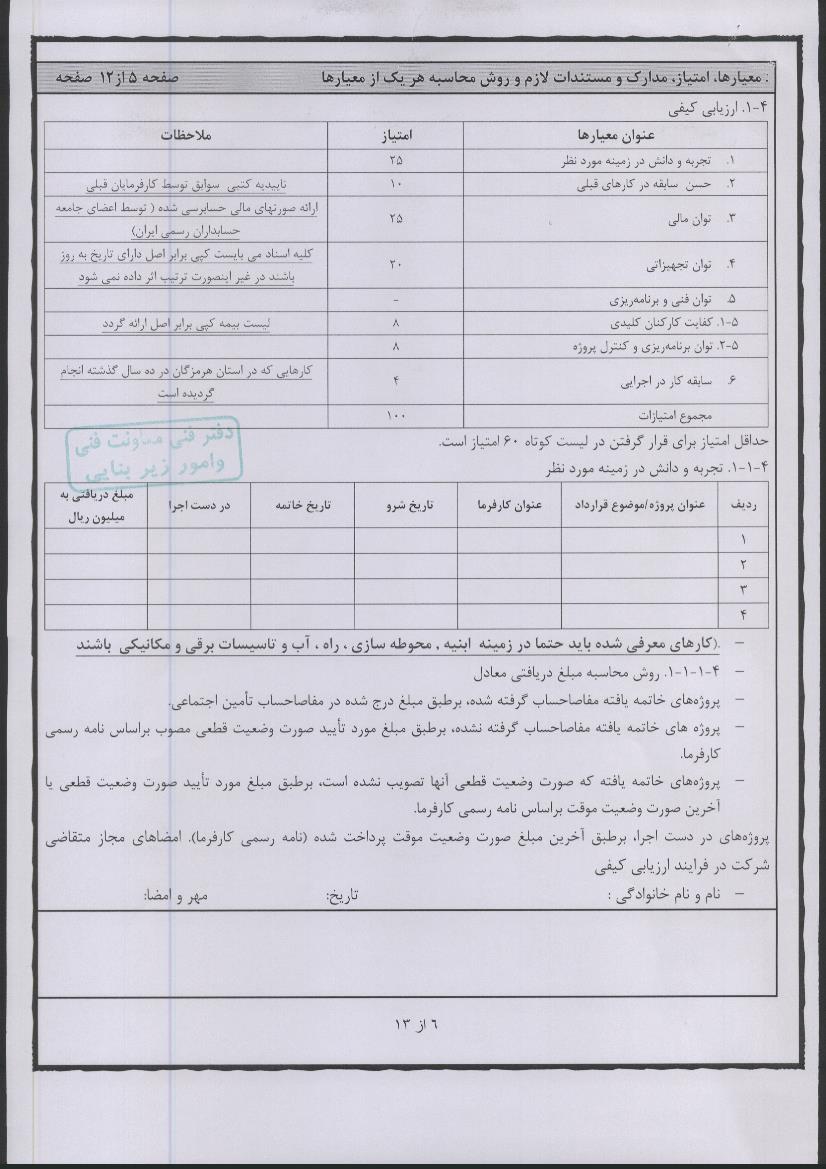 : معیارها، امتیاز، مدارک و مستندات لازم و روش محاسبه هر یک از معیارها صفحه ۵ از ۱۲ صفحه
۴-۱. ارزیابی کیفی
عنوان معیارها امتیاز ملاحظات
۱. تجربه و دانش در زمینه مورد نظر ۲۵
۲. حسن سابقه در کارهای قبلی ۱۰ تاییدیه کتبی سوابق توسط کارفرمایان قبلی
۳. توان مالی ۲۵ ارائه صورتهای مالی حسابرسی شده ( توسط اعضای جامعه
حسابداران رسمی ایران)
۴. توان تجهیزاتی ۲۰ کلیه اسناد می بایست کپی برابر اصل دارای تاریخ به روز
باشند در غیر اینصورت ترتیب اثر داده نمی شود
۵. توان فنی و برنامه‌ریزی -
۵-۱. کفایت کارکنان کلیدی ۸ لیست بیمه کپی برابر اصل ارائه گردد
۵-۲. توان برنامه‌ریزی و کنترل پروژه ۸
۶. سابقه کار در اجرایی ۴ کارهایی که در استان هرمزگان در ده سال گذشته انجام
گردیده است
مجموع امتیازات ۱۰۰
دفتر فنی معاونت فنی
وامور زیر بنایی
حداقل امتیاز برای قرار گرفتن در لیست کوتاه ۶۰ امتیاز است.
۴-۱-۱. تجربه و دانش در زمینه مورد نظر
ردیف عنوان پروژه/موضوع قرارداد عنوان کارفرما تاریخ شرو تاریخ خاتمه در دست اجرا مبلغ دریافتی به
میلیون ریال
۱
۲
۳
۴
- .(کارهای معرفی شده باید حتما در زمینه ابنیه , محوطه سازی ، راه ، آب و تاسیسات برقی و مکانیکی باشند
- ۴-۱-۱-۱. روش محاسبه مبلغ دریافتی معادل
- پروژه‌های خاتمه یافته مفاصاحساب گرفته شده، برطبق مبلغ درج شده در مفاصاحساب تأمین اجتماعی.
- پروژه های خاتمه یافته مفاصاحساب گرفته نشده، برطبق مبلغ مورد تأیید صورت وضعیت قطعی مصوب براساس نامه رسمی
کارفرما.
- پروژه‌های خاتمه یافته که صورت وضعیت قطعی آنها تصویب نشده است، برطبق مبلغ مورد تأیید صورت وضعیت قطعی یا
آخرین صورت وضعیت موقت براساس نامه رسمی کارفرما.
پروژه‌های در دست اجرا، برطبق آخرین مبلغ صورت وضعیت موقت پرداخت شده (نامه رسمی کارفرما). امضاهای مجاز متقاضی
شرکت در فرایند ارزیابی کیفی
- نام و نام خانوادگی : تاریخ: مهر و امضا:
٦ از ١٣